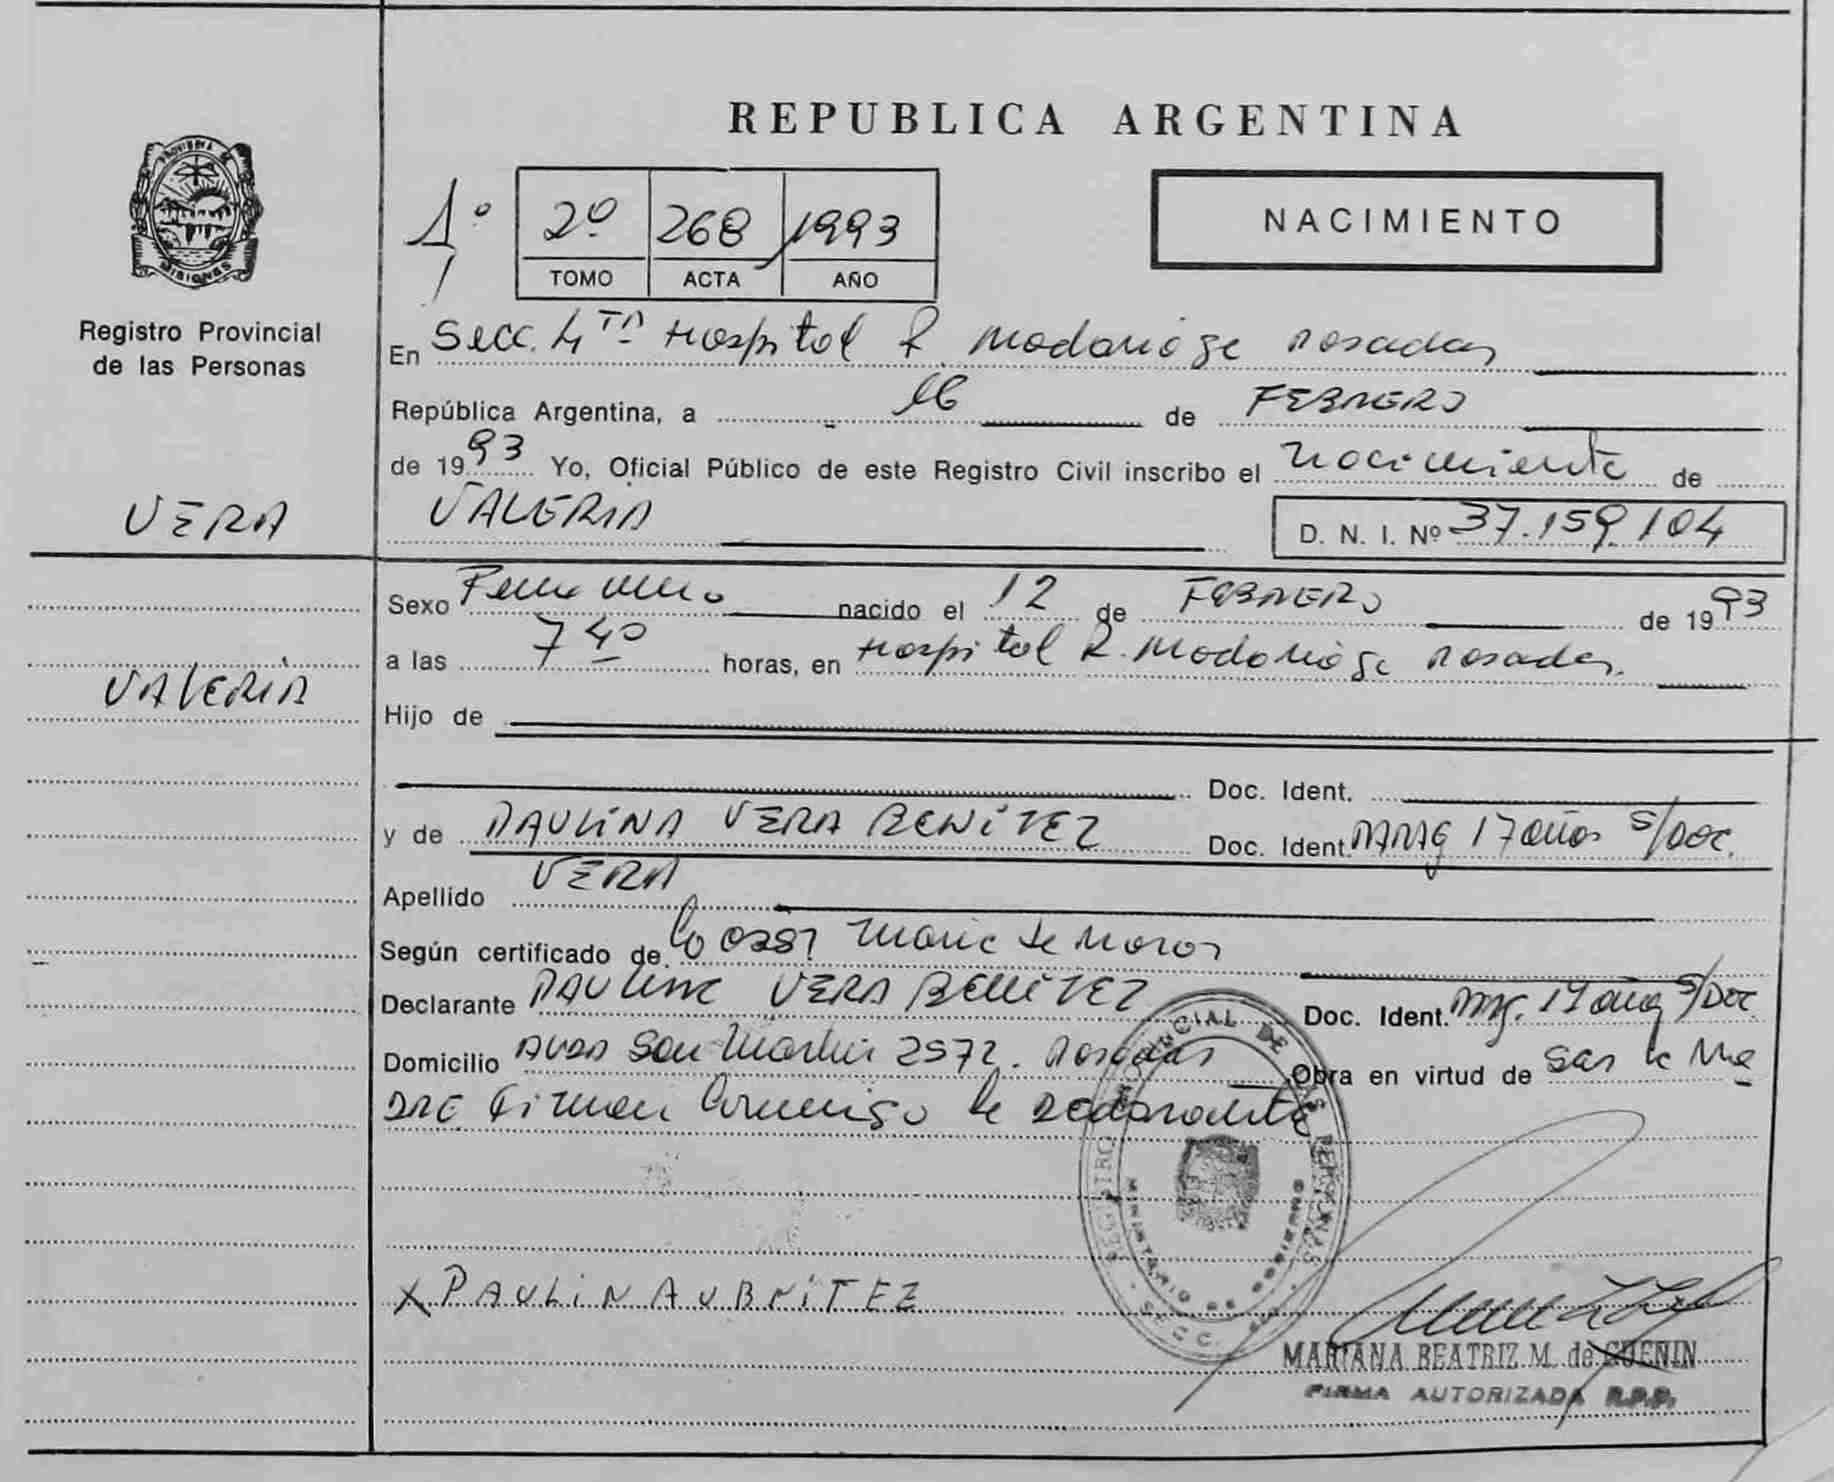 REPUBLICA ARGENTINA
PROVINCIA DE
MISIONES
Registro Provincial
de las Personas
1º
2º 268 1993
TOMO ACTA AÑO
NACIMIENTO
En Secc. 4TA Hospital R. Madariaga Posadas
República Argentina, a 16 de FEBRERO
de 1993 Yo, Oficial Público de este Registro Civil inscribo el nacimiento de
VERA
VALERIA D. N. I. Nº 37.159.104
Sexo Femenino nacido el 12 de FEBRERO de 1993
a las 7 40 horas, en Hospital R. Madariaga Posadas.
VALERIA
Hijo de
Doc. Ident.
y de PAULINA VERA BENITEZ Doc. Ident. PARAG 17 años S/DOC.
Apellido VERA
Según certificado de la Obst Maria de
Declarante PAULINA VERA BENITEZ Doc. Ident. S/DOC
Domicilio AVDA San Martin 2572. Posadas Obra en virtud de Ser la Ma
DRE. Firman Conmigo la declarante
REGISTRO PROVINCIAL DE LAS PERSONAS
MINISTERIO DE GOBIERNO
SECC.
X PAULINA V BNITEZ
MARIANA BEATRIZ M. de GUENIN
FIRMA AUTORIZADA R.P.P.